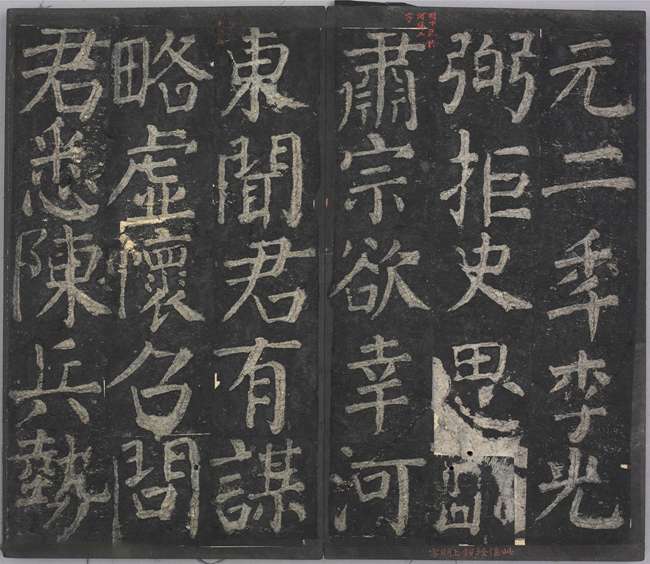 元二年李光
弼拒史思明
肅宗欲幸河
東聞君有謀
略虛懷召問
君悉陳兵勢